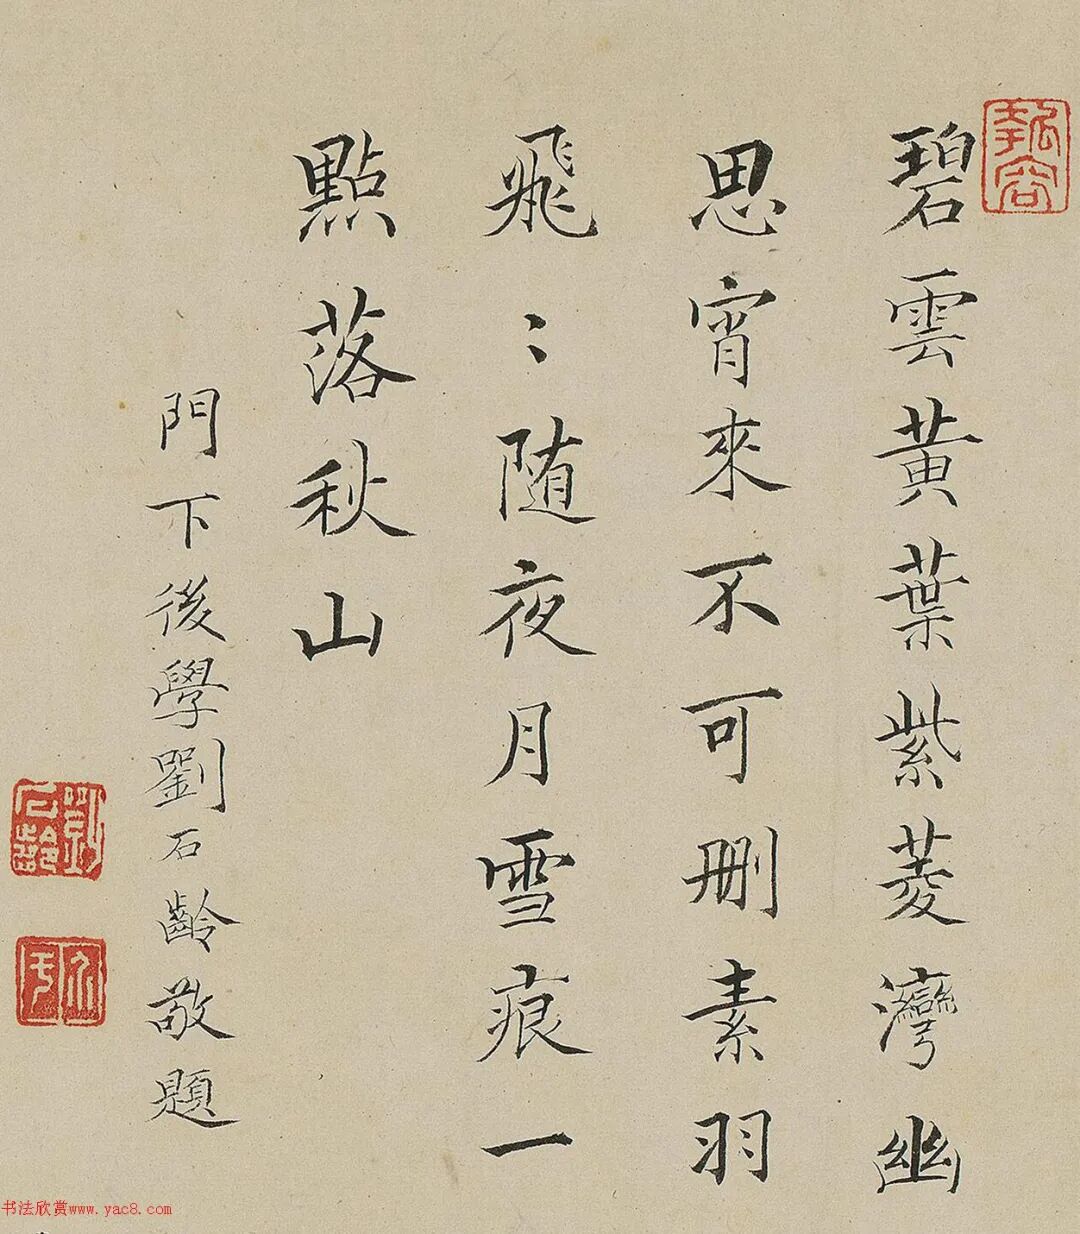 碧雲黃葉紫菱灣幽
思宵來不可刪素羽
飛〻随夜月雪痕一
點落秋山
門下後學劉石齡敬題
劉石齡
书法欣赏www.yac8.com